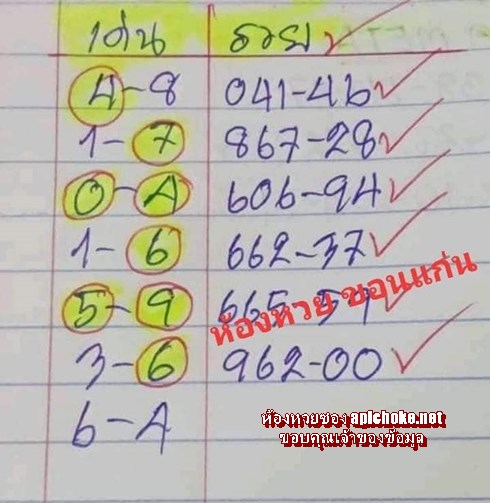 เด่น รวย
4-8 041-46
1-7 867-28
0-4 606-94
1-6 662-37
5-9 665-59
3-6 962-00
6-4
ห้องหวย ขอนแก่น
ห้องหวยซอง apichoke.net
ขอบคุณเจ้าของข้อมูล